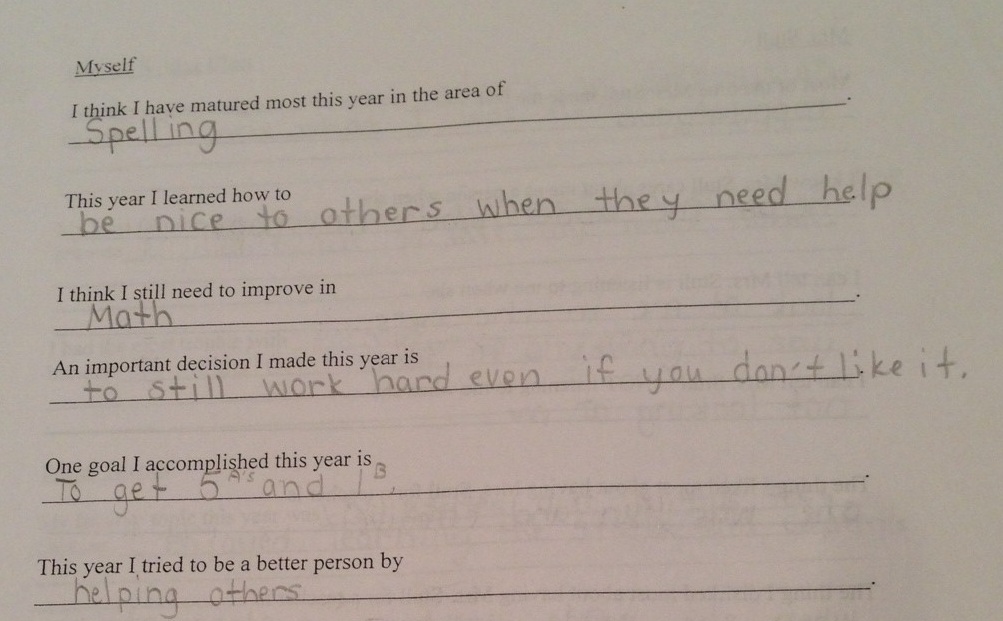 Myself
I think I have matured most this year in the area of
Spelling.
This year I learned how to
be nice to others when they need help.
I think I still need to improve in
Math.
An important decision I made this year is
to still work hard even if you don't like it.
One goal I accomplished this year is
To get 5 A's and 1 B.
This year I tried to be a better person by
helping others.